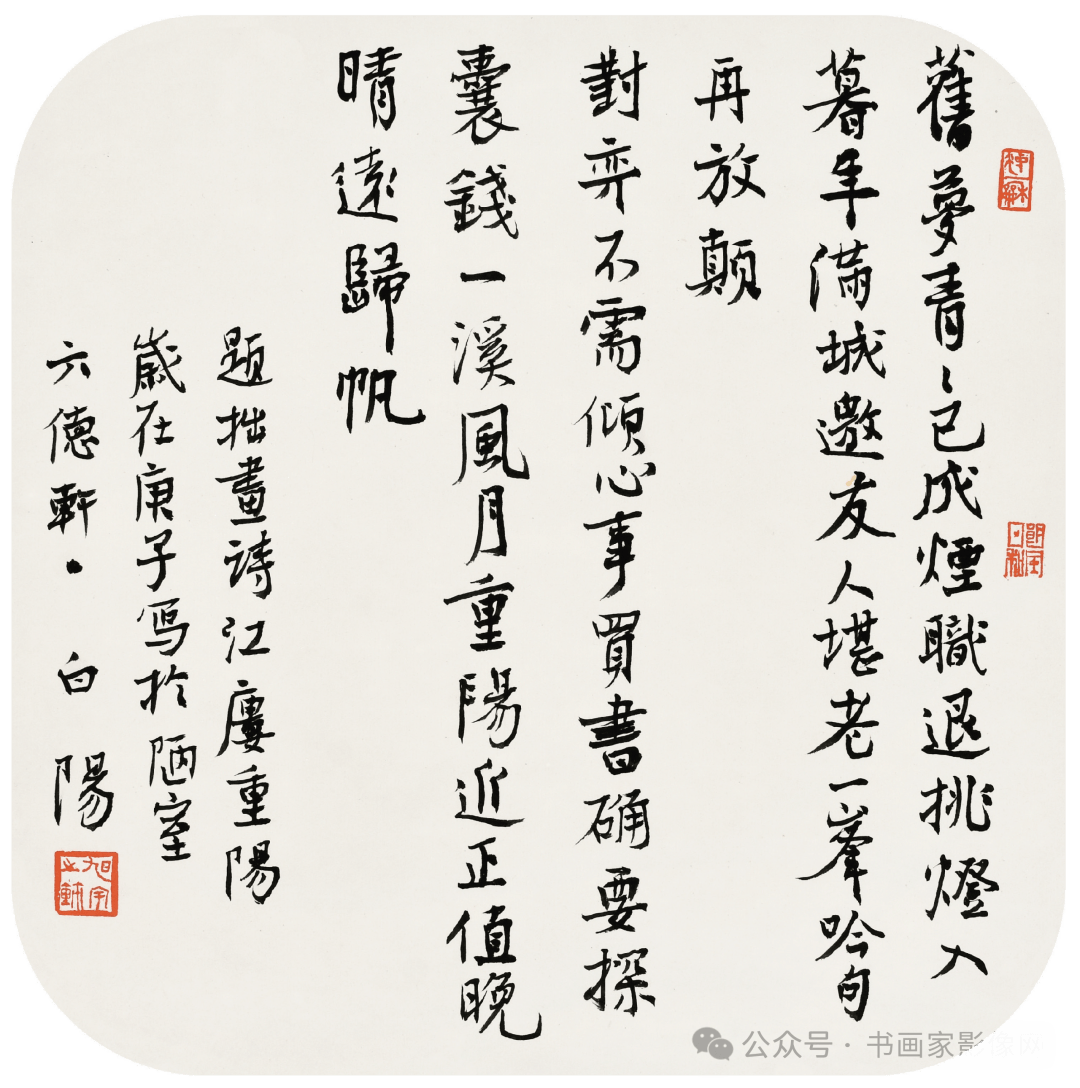 舊夢青〻已成煙職退挑燈入
暮年滿城邀友人堪老一峯吟句
再放顛
對弈不需傾心事買書确要探
囊錢一溪風月重陽近正值晚
晴遠歸帆
題拙畫詩江廔重陽
歲在庚子写於陋室
六德軒·白陽
旭宇之鉥
公众号·书画家影像网